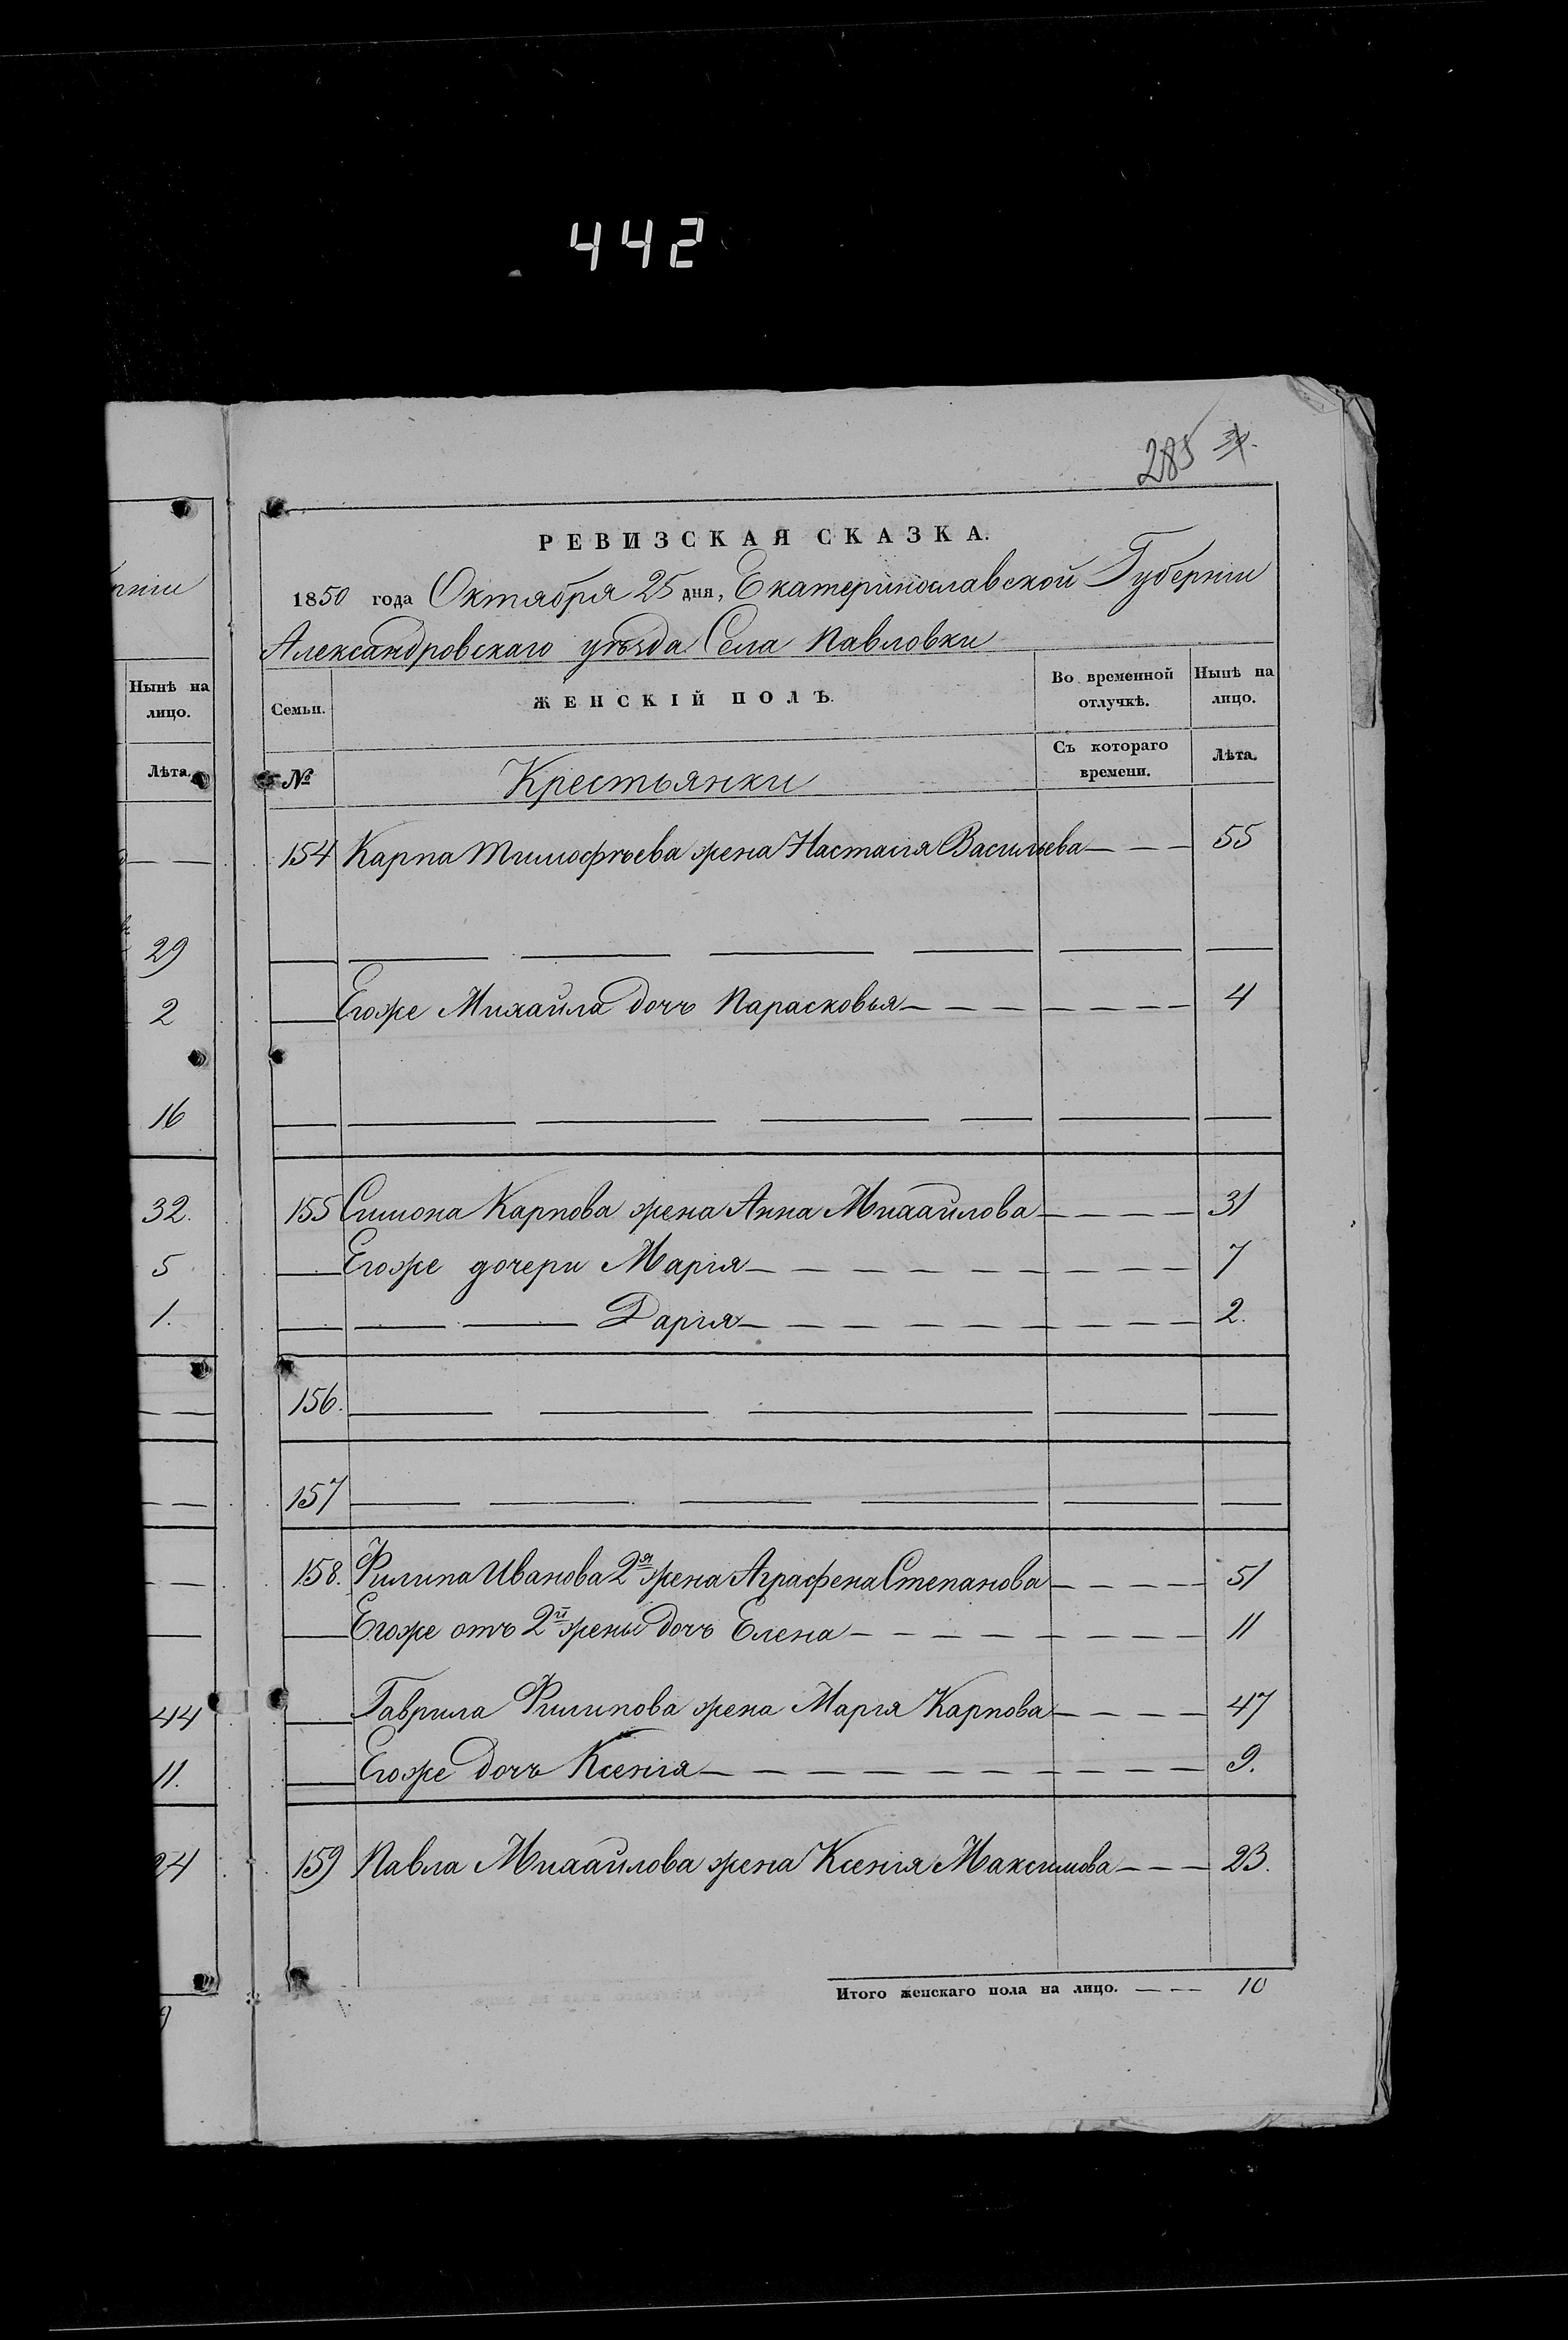 442
285
РЕВИЗСКАЯ СКАЗКА.
1850 года Октября 25 дня, Екатеринославской Губерніи
Александровскаго уѣзда Села Павловки
Семьи. ЖЕНСКІЙ ПОЛЪ. Во временной отлучкѣ. Нынѣ на лицо.
№ Крестьянки Съ котораго времени. Лѣта.
154 Карпа Тимофѣева жена Настасія Васильева — — — 55
Егоже Михайла дочь Парасковья — — — — — — 4
155 Симона Карпова жена Анна Михайлова — — — — 31
Егоже дочери Марія — — — — — — — — — 7
— — Дарія — — — — — — — — — 2.
156.
157
158. Филипа Иванова 2я жена Аграфена Степанова — — — — 51
Егоже отъ 2й жены дочь Елена — — — — — — — — 11
Гаврила Филипова жена Марія Карпова — — — — 47
Егоже дочь Ксенія — — — — — — — — — — 9.
159 Павла Михайлова жена Ксенія Максимова — — — 23.
Итого женскаго пола на лицо. — — 10
рніи
Нынѣ на лицо.
Лѣта.
29
2
16
32.
5
1.
44
11.
24
9